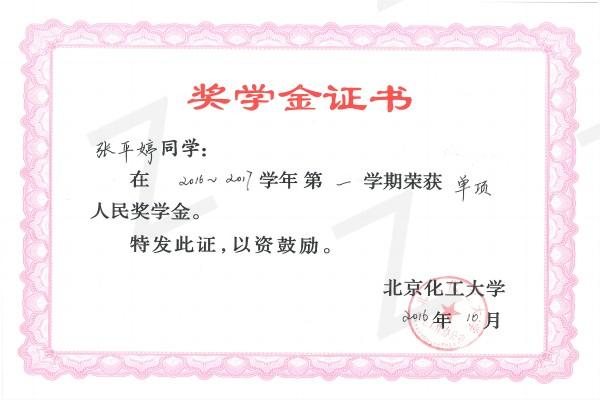 奖学金证书
张平婷同学：
在 2016~2017 学年 第 一 学期荣获 单项
人民奖学金。
特发此证，以资鼓励。
北京化工大学
2016 年 10 月